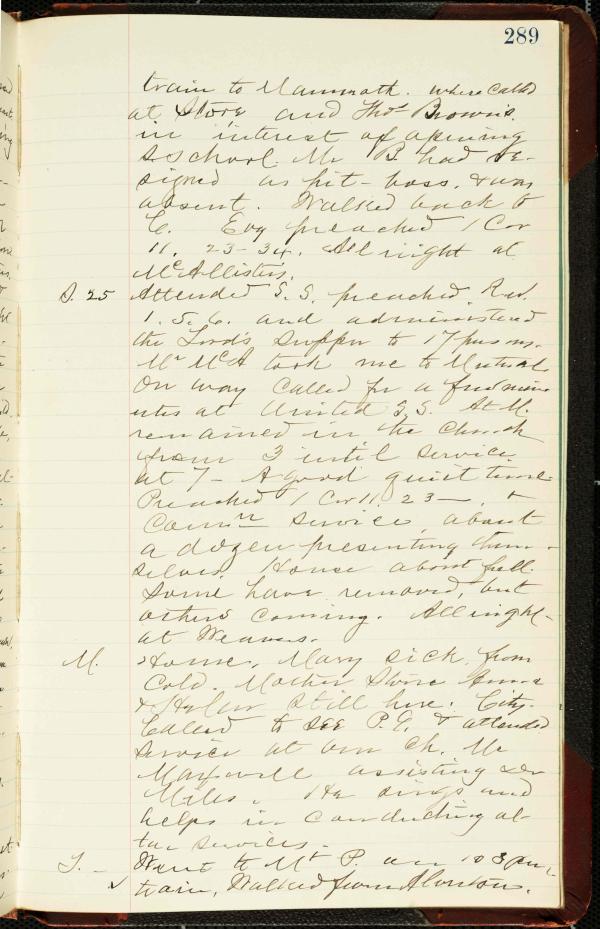 289
train to Mammoth. where called
at Store and Thos Brown's
in interest of opening
S School. Mr B. had re-
signed as pit-boss, & was
absent. Walked back to
C. Evg preached 1 Cor
11. 23-34. All night at
McAllisters.
S. 25 Attended S.S. preached Rev.
1. 5. 6. and administered
the Lord's Supper to 17 persons.
Mr McA took me to Mutual
On way called for a few min
utes at United S.S. At M.
remained in the church
from 3 until service
at 7 - A good quiet time
Preached 1 Cor 11. 23 - . &
Comn service, about
a dozen presenting them-
selves. House about full.
Some have removed, but
others coming. All night
at Weavers.
M. Home. Mary sick from
cold. Mother
& still here. City.
Called to see P.G. & attended
service at our Ch. Mr
Maxwell assisting Dr
Miles. He sings and
helps in conducting al-
tar services.
T. - Went to Mt P. on 10 3
train, Walked from